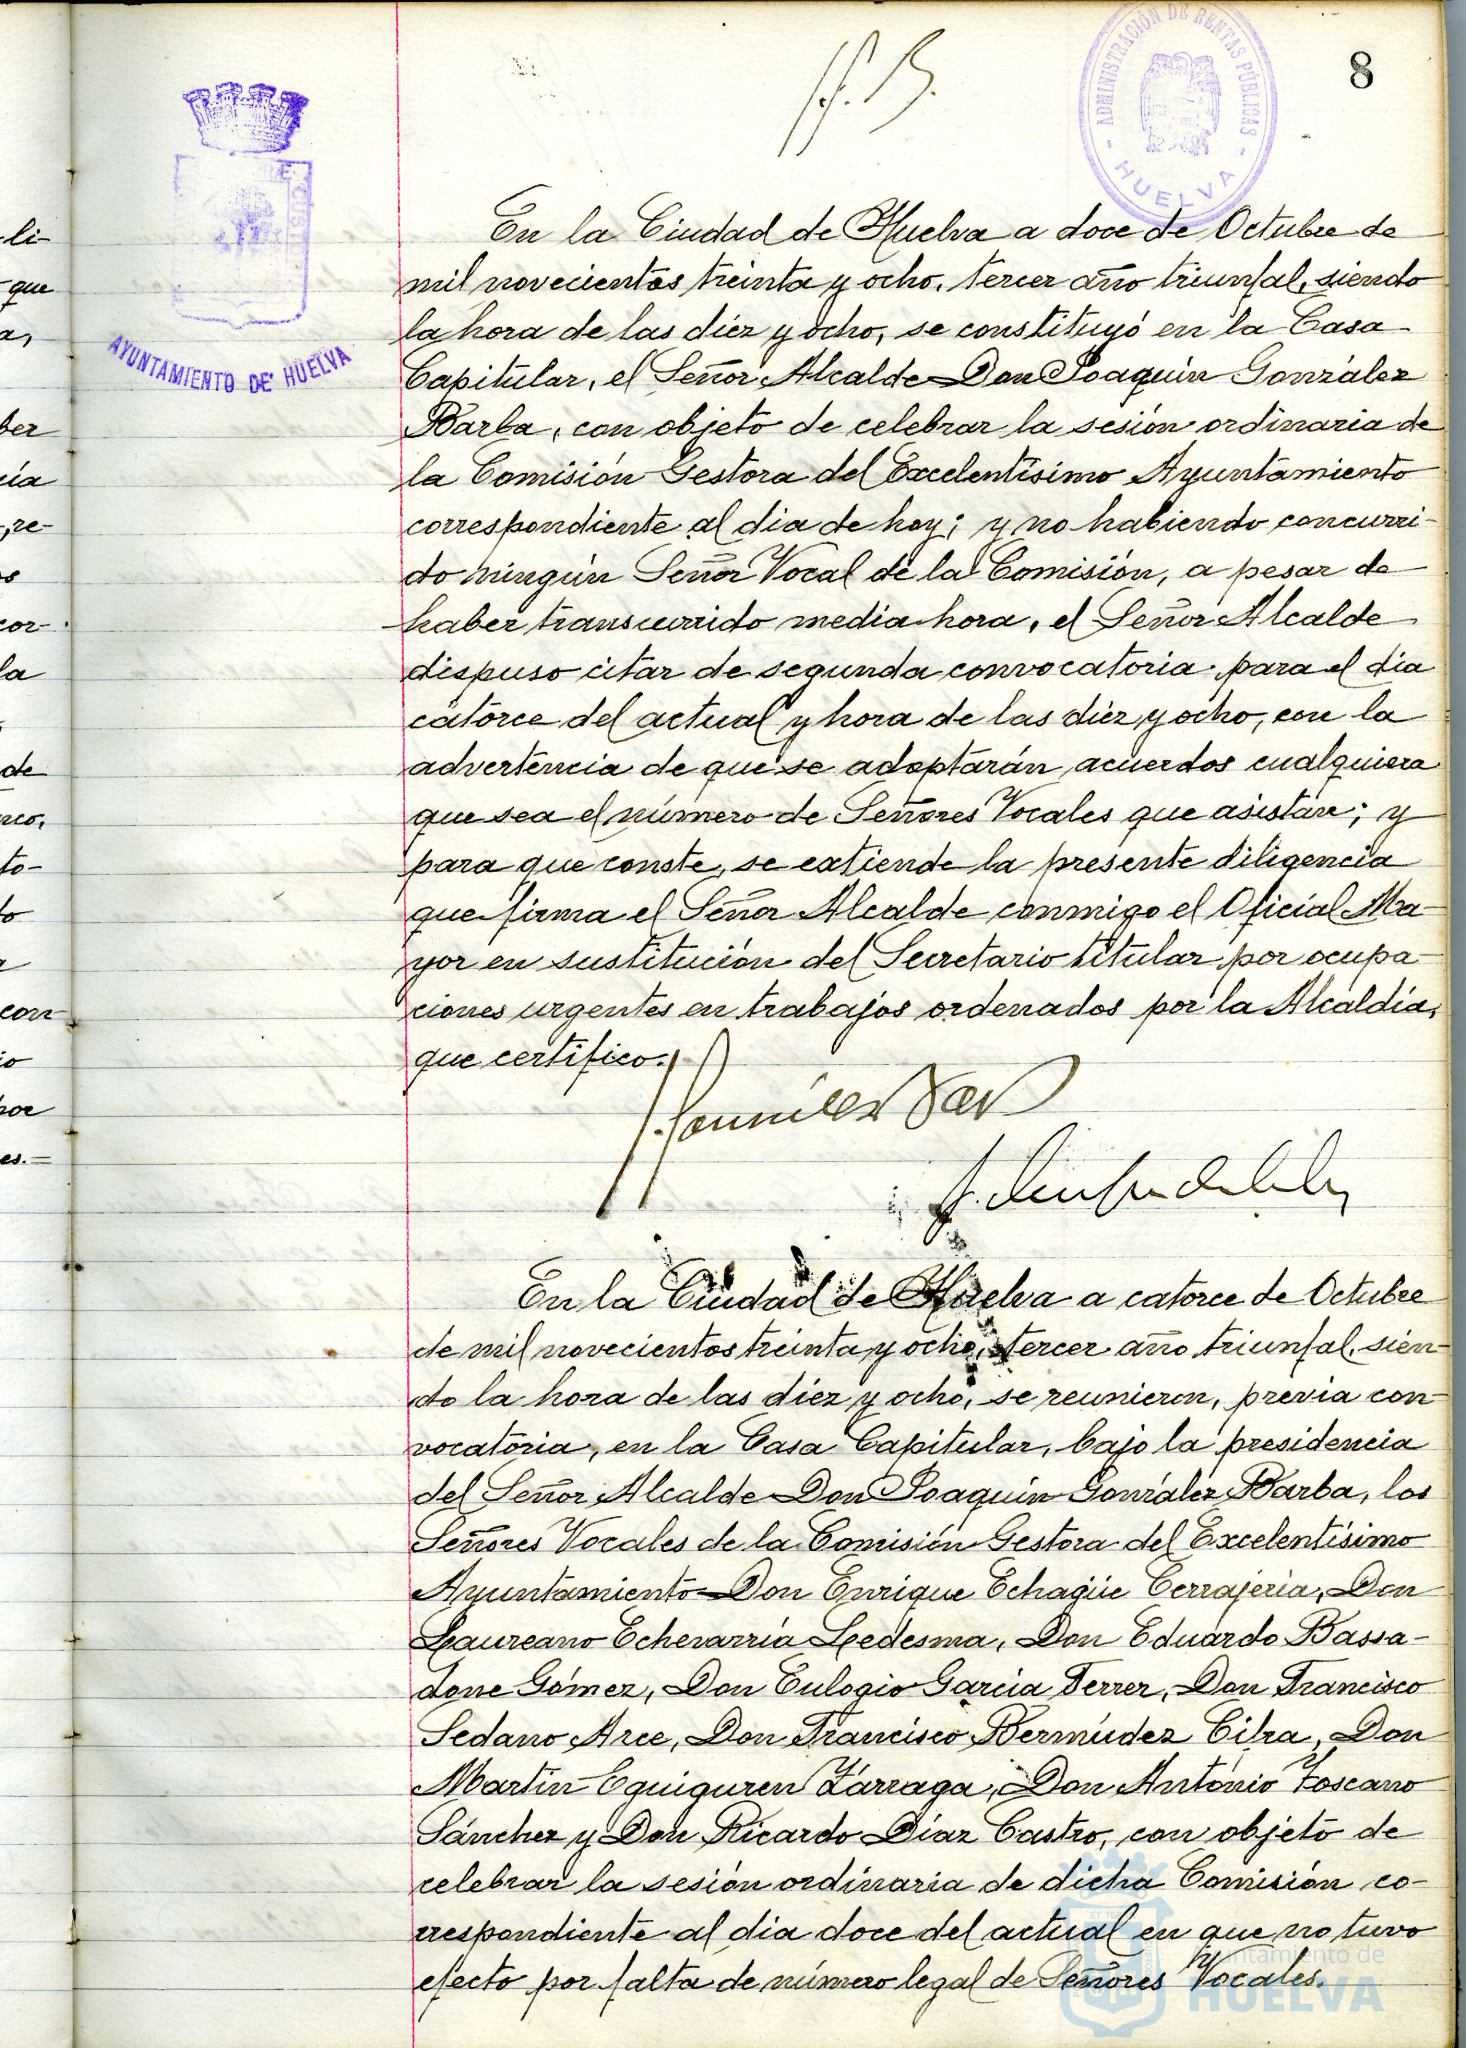 8
ADMINISTRACIÓN DE RENTAS PÚBLICAS
HUELVA
AYUNTAMIENTO DE HUELVA
En la Ciudad de Huelva a doce de Octubre de
mil novecientos treinta y ocho, tercer año triunfal, siendo
la hora de las diez y ocho, se constituyó en la Casa
Capitular, el Señor Alcalde Don Joaquín González
Barba, con objeto de celebrar la sesión ordinaria de
la Comisión Gestora del Excelentísimo Ayuntamiento
correspondiente al dia de hoy; y no habiendo concurri-
do ningún Señor Vocal de la Comisión, a pesar de
haber transcurrido media hora, el Señor Alcalde
dispuso citar de segunda convocatoria para el dia
catorce del actual y hora de las diez y ocho, con la
advertencia de que se adoptarán acuerdos cualquiera
que sea el número de Señores Vocales que asistan; y
para que conste, se extiende la presente diligencia
que firma el Señor Alcalde conmigo el Oficial Ma-
yor en sustitución del Secretario titular por ocupa-
ciones urgentes en trabajos ordenados por la Alcaldía,
que certifico.
En la Ciudad de Huelva a catorce de Octubre
de mil novecientos treinta y ocho, tercer año triunfal, sien-
do la hora de las diez y ocho, se reunieron, previa con-
vocatoria, en la Casa Capitular, bajo la presidencia
del Señor Alcalde Don Joaquín González Barba, los
Señores Vocales de la Comisión Gestora del Excelentísimo
Ayuntamiento Don Enrique Echagüe Cerrajería, Don
Laureano Echevarría Ledesma, Don Eduardo Bassa-
done Gómez, Don Eulogio García Ferrer, Don Francisco
Sedano Arce, Don Francisco Bermúdez Cilra, Don
Martín Eguiguren Zárraga, Don António Toscano
Sánchez y Don Ricardo Díaz Castro, con objeto de
celebrar la sesión ordinaria de dicha Comisión co-
rrespondiente al dia doce del actual en que no tuvo
efecto por falta de número legal de Señores Vocales.
Ayuntamiento de
HUELVA